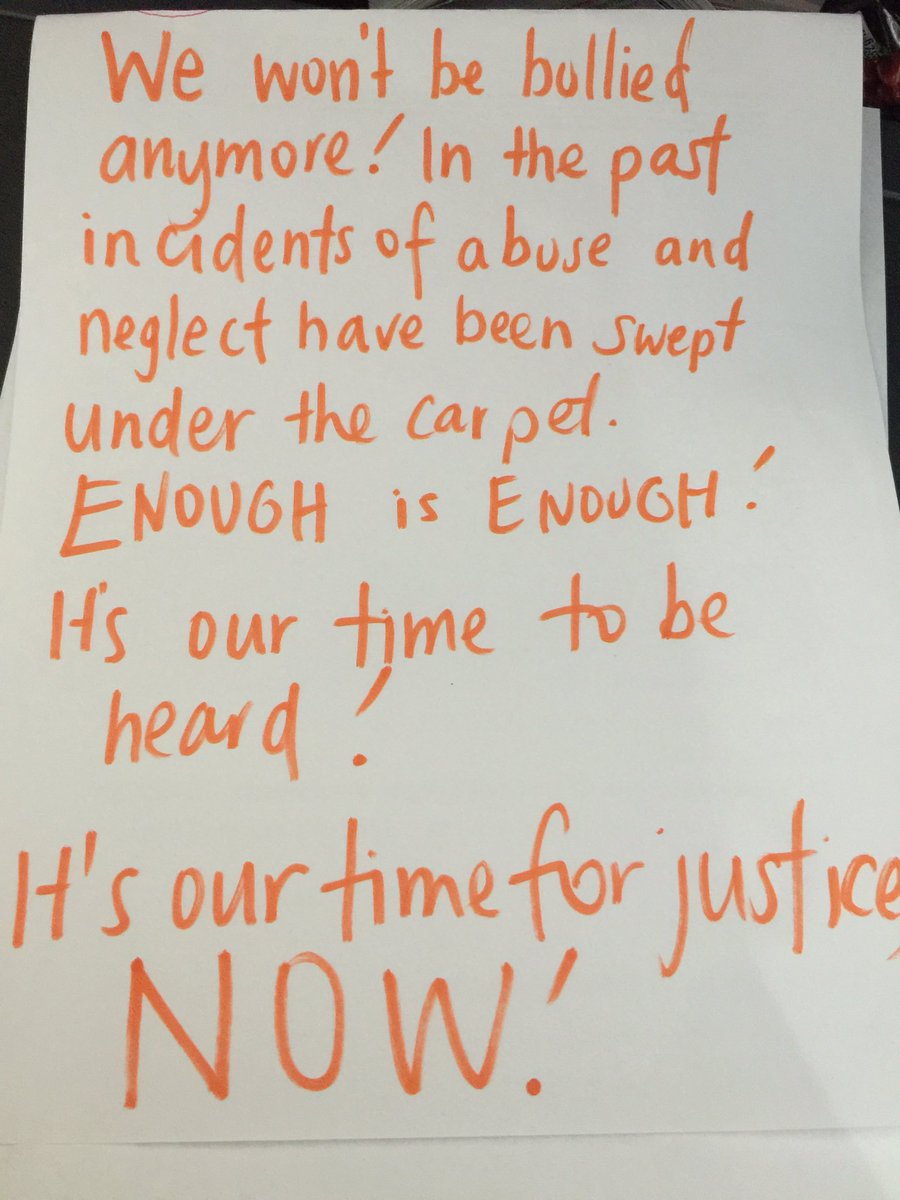 We won't be bullied
anymore! In the past
incidents of abuse and
neglect have been swept
under the carpet.
ENOUGH is ENOUGH!
It's our time to be
heard!
It's our time for justice,
NOW!